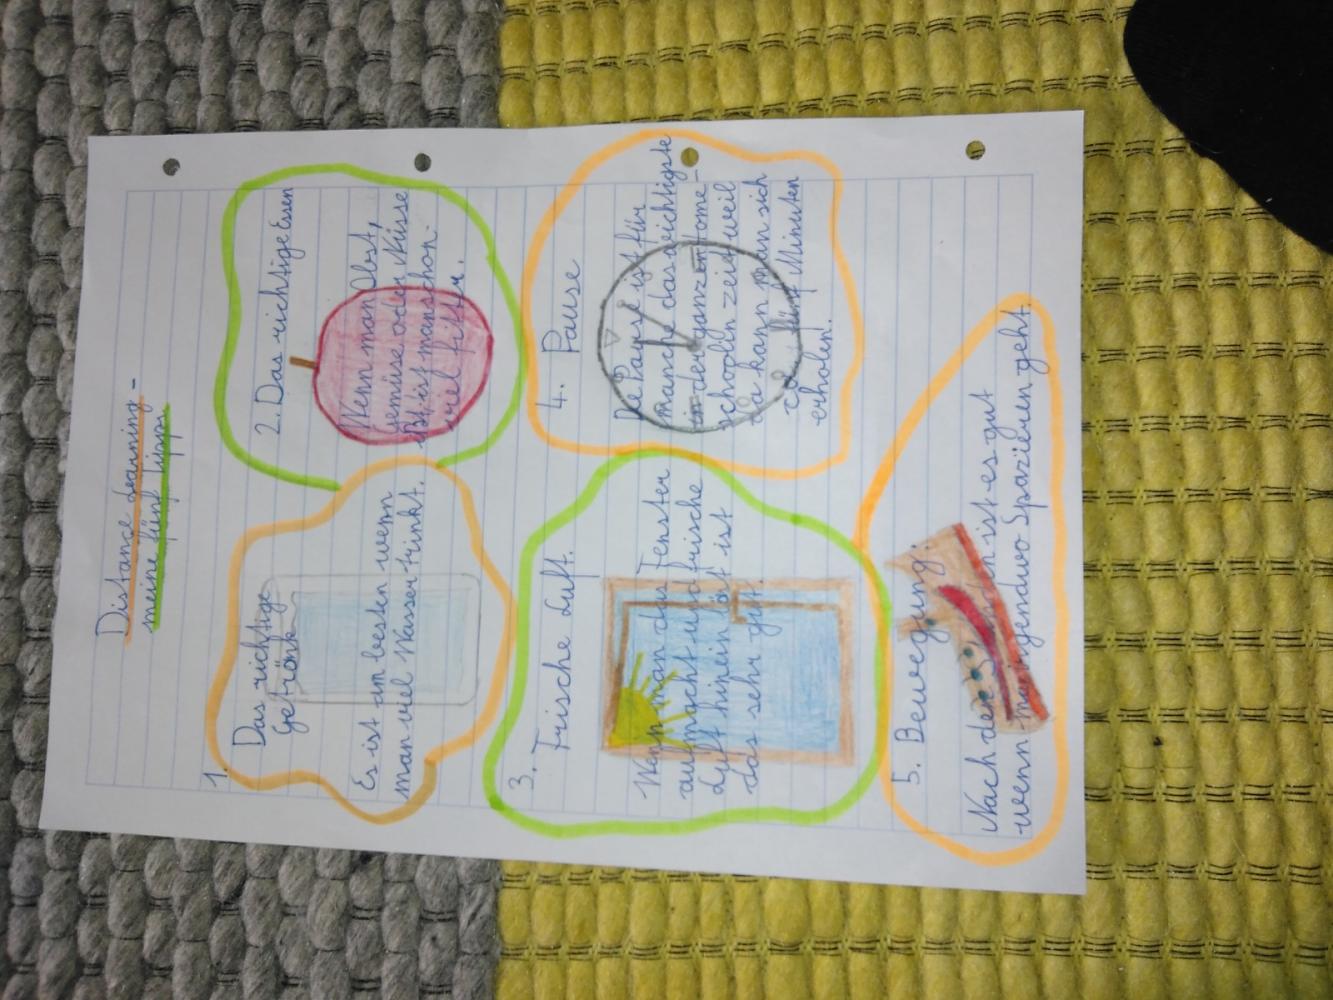 Distance learning -
meine fünf Tipps
1. Das richtige
Getränk
Es ist am besten wenn
man viel Wasser trinkt.
2. Das richtige Essen
Wenn man Obst,
gemüse oder Nüsse
ist man schon
viel fitter.
3. Frische Luft.
Wenn man das Fenster
aufmacht und frische
Luft hinein läst ist
das sehr gut.
4. Pause
Die Pause ist für
Manche das wichtigste
in der ganzen Home-
schooln zeit weil
da kann man sich
ca. fünf Minuten
erholen!
5. Bewegung:
Nach den ist es gut
wenn man irgendwo Spazieren geht.